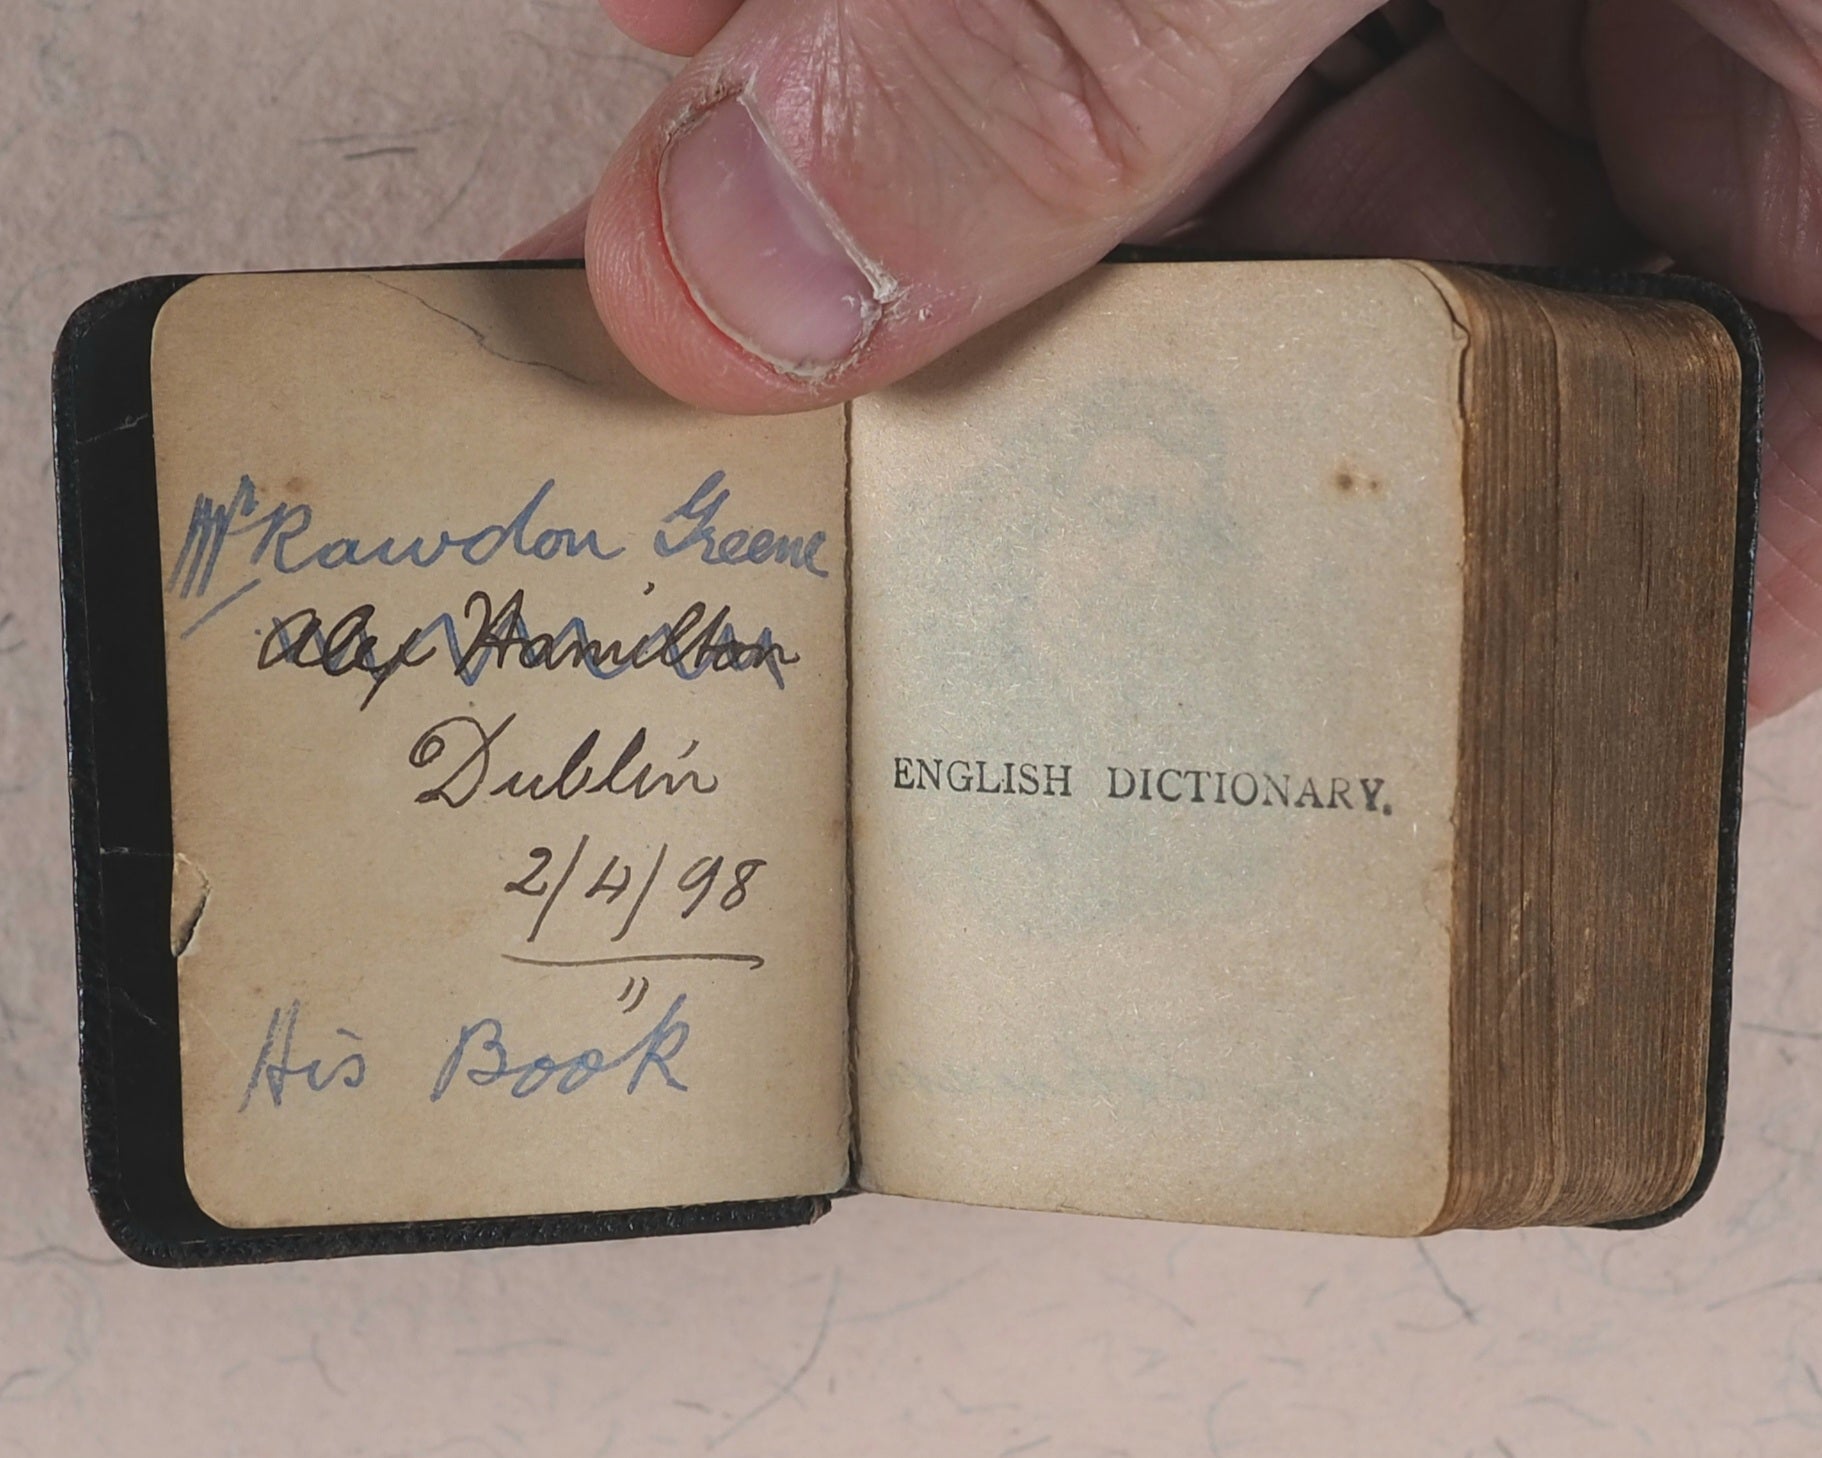 Mr Rawdon Greene
Alex Hamilton
Dublin
2/4/98
His Book
ENGLISH DICTIONARY.